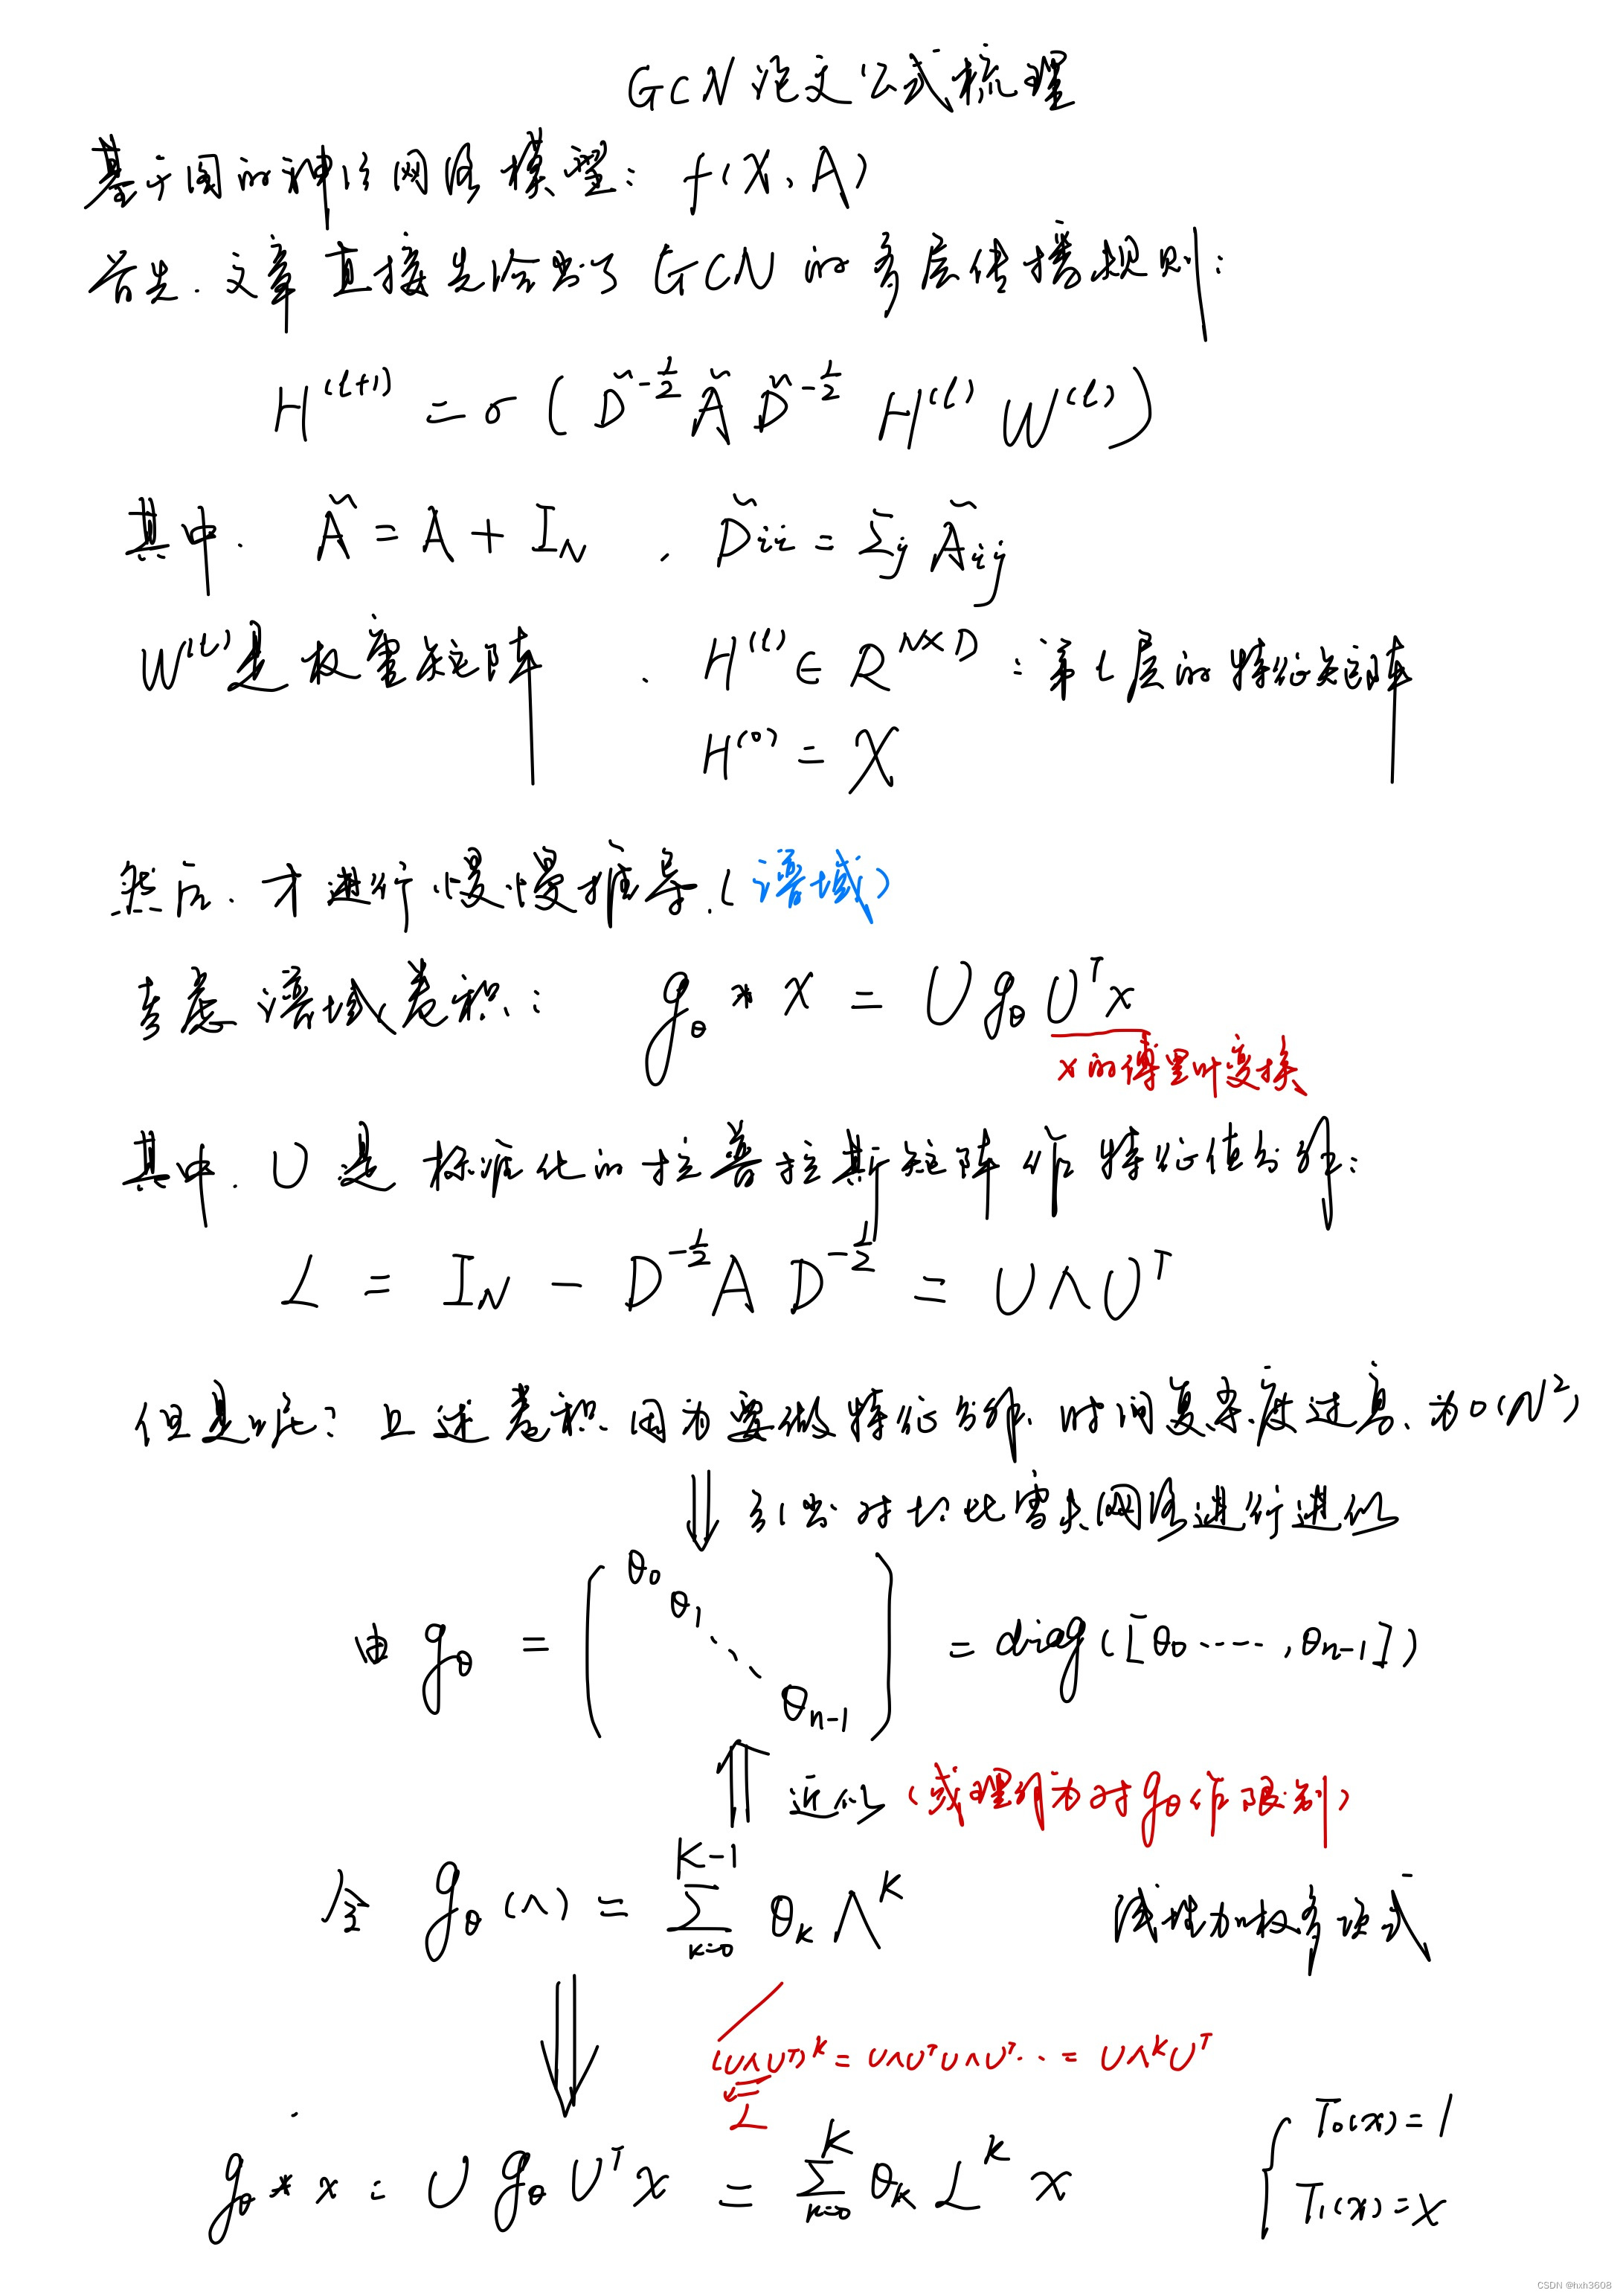 GCN论文公式梳理
基于图的神经网络模型: f(X, A)
首先.文章直接先给出了GCN的多层传播规则:
H^(l+1) = σ ( D̃^-1/2 Ã D̃^-1/2 H^(l) W^(l) )
其中. Ã = A + I_N , D̃ii = Σj Ãij
W^(l)是权重矩阵 , H^(l) ∈ R^N×D : 第l层的特征矩阵
H^(0) = X
然后.才进行慢慢推导.(谱域)
考虑谱域卷积: g_θ * x = U g_θ U^T x
x的傅里叶变换
其中.U是标准化的拉普拉斯矩阵作特征值分解:
L = I_N - D^-1/2 A D^-1/2 = U Λ U^T
但是呢?上述卷积因为要做特征分解,时间复杂度过高,为O(N^2)
⇓ 引出对切比雪夫网络进行进似
由 g_θ = ( θ0 θ1 ⋱ θn-1 ) = diag([θ0 ······, θn-1])
⇑ 近似 (或理解为对g_θ作限制)
令 g_θ(Λ) = Σ_{k=0}^{K-1} θ_k Λ^k 线性加权多项式
(UΛU^T)^K = UΛU^T UΛU^T ·· = UΛ^K U^T
L
g_θ * x = U g_θ U^T x = Σ_{k=0}^{K} θ_k L^k x { T0(x) = 1
T1(x) = x
CSDN @hxh3608